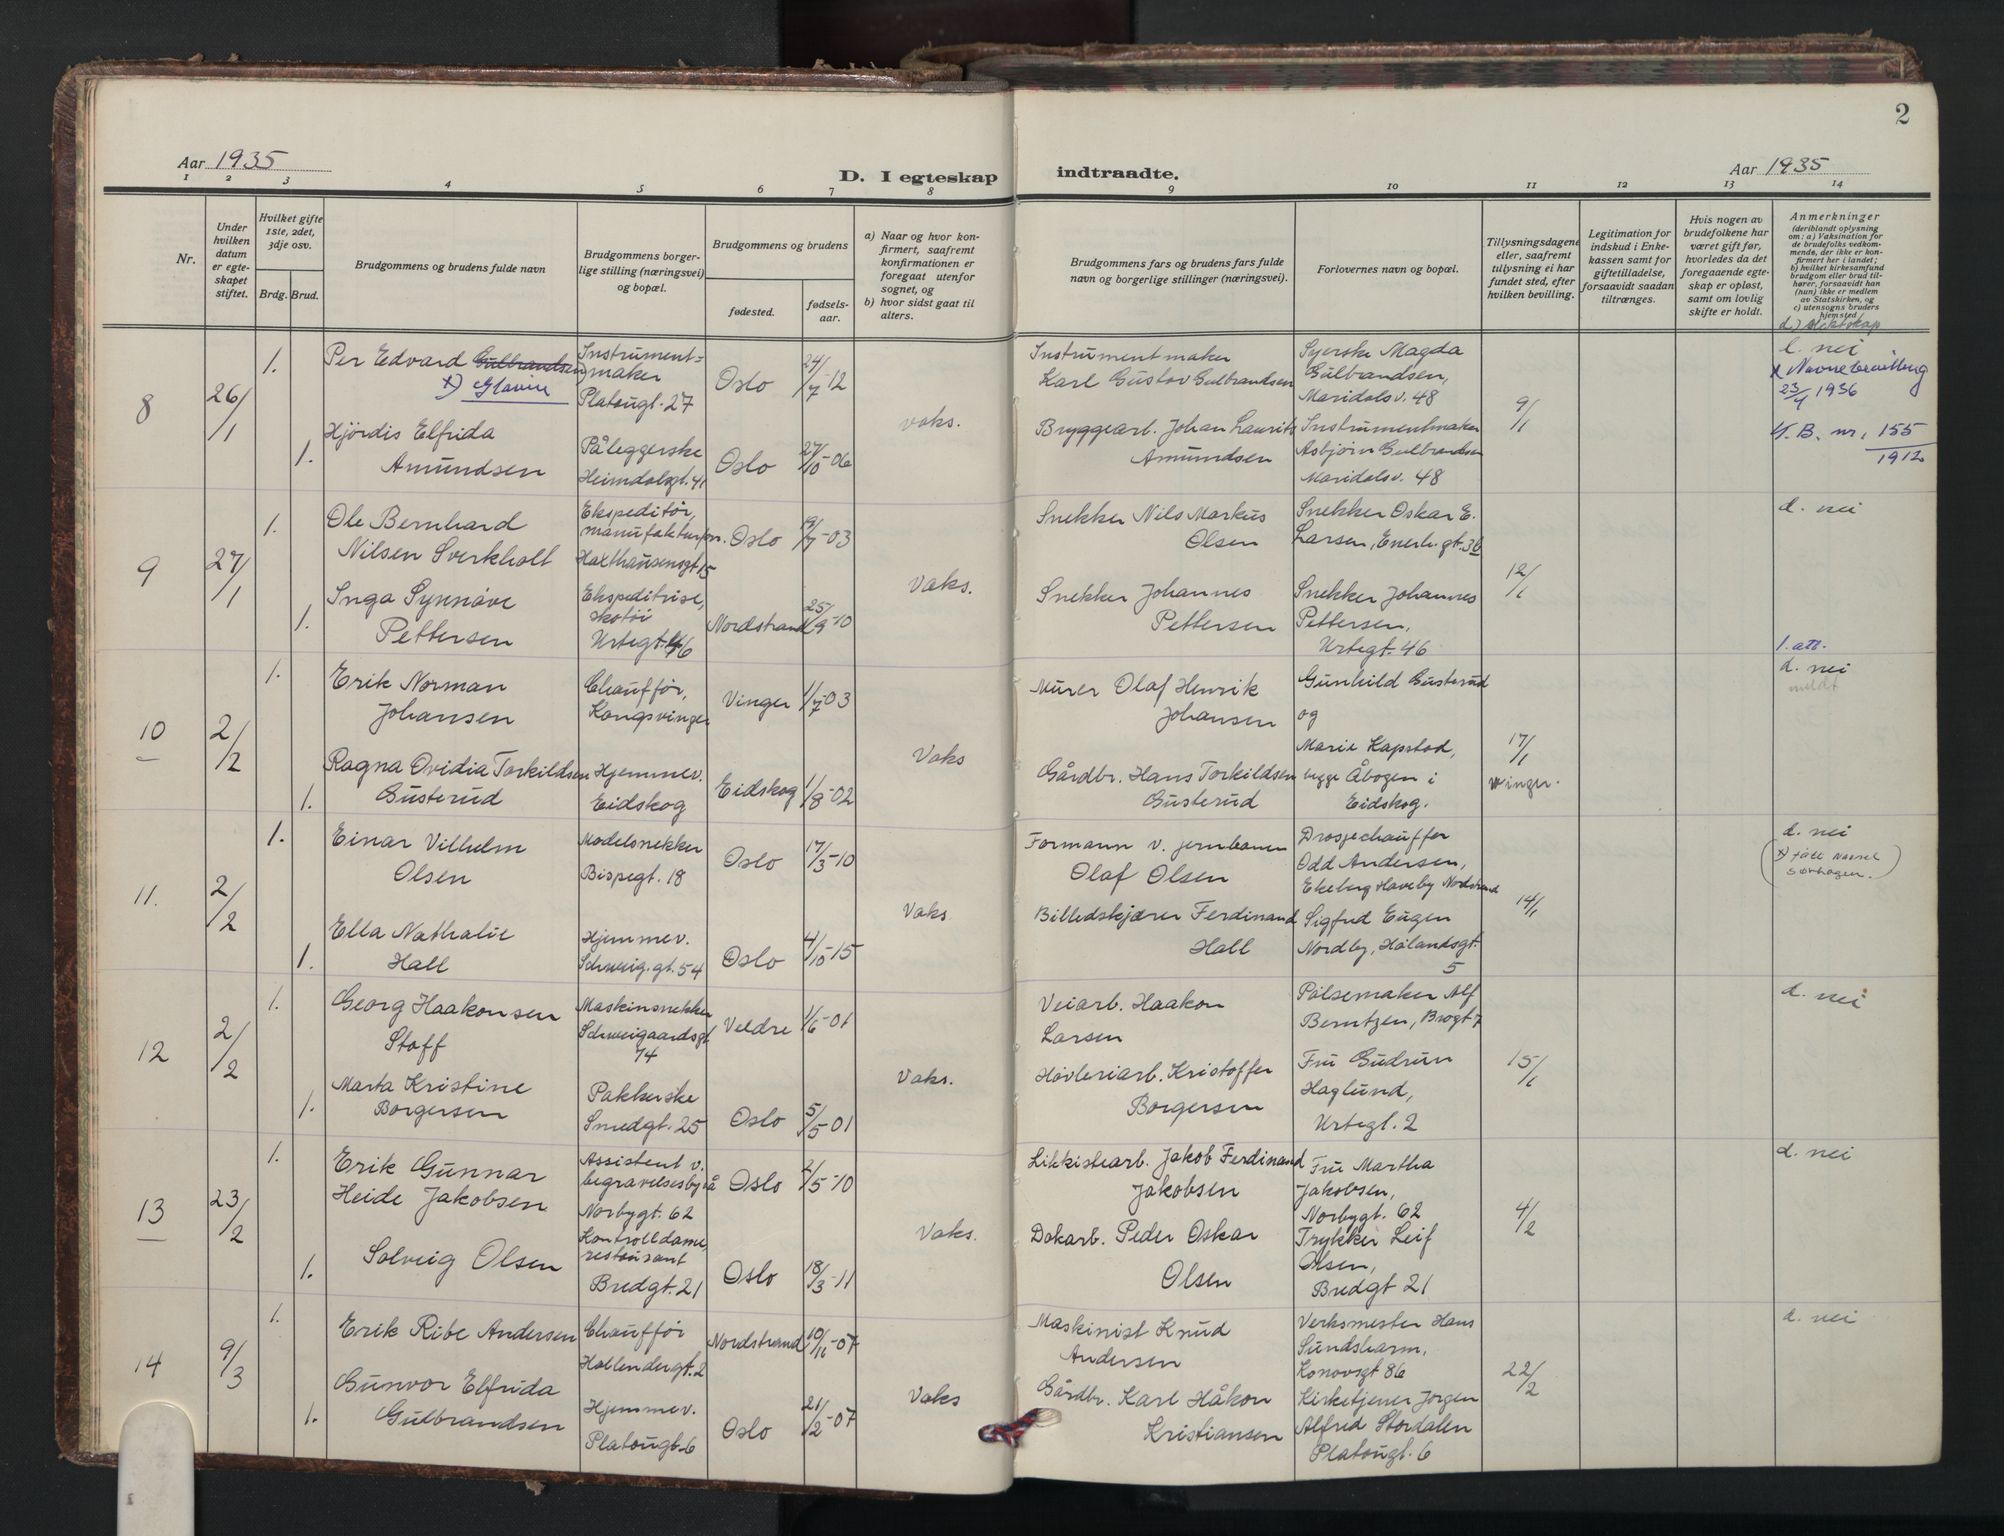 2
Aar 1935
D. I egteskap indtraadte.
Aar 1935
1 2 3 4 5 6 7 8 9 10 11 12 13 14
Nr.
Under hvilken datum er egteskapet stiftet.
Hvilket gifte 1ste, 2det, 3dje osv.
Brdg. Brud.
Brudgommens og brudens fulde navn
Brudgommens borgerlige stilling (næringsvei) og bopæl.
Brudgommens og brudens
fødested.
fødselsaar.
a) Naar og hvor konfirmert, saafremt konfirmationen er foregaat utenfor sognet, og
b) hvor sidst gaat til alters.
Brudgommens fars og brudens fars fulde navn og borgerlige stillinger (næringsvei).
Forlovernes navn og bopæl.
Tillysningsdagene eller, saafremt tillysning ei har fundet sted, efter hvilken bevilling.
Legitimation for indskud i Enkekassen samt for giftetilladelse, forsaavidt saadan tiltrænges.
Hvis nogen av brudefolkene har været gift før, hvorledes da det foregaaende egteskap er opløst, samt om lovlig skifte er holdt.
Anmerkninger (deriblandt oplysning om: a) Vaksination for de brudefolks vedkommende, der ikke er konfirmert her i landet; b) hvilket kirkesamfund brudgom eller brud tilhører, forsaavidt han (hun) ikke er medlem av Statskirken, og c) utensogns bruders hjemsted
d.) slektskap
8
26/1
1.
Per Edvard Gulbrandsen
x) Glavin
Instrumentmaker
Platougt. 27
Oslo
24/7-12
vaks.
Instrumentmaker
Karl Gustav Gulbrandsen
Syerske Magda
Gulbrandsen,
Maridalsv. 48
9/1
d. nei
x Navnebevilling
23/4 1936
B. nr. 155
1912
1.
Hjördis Elfrida
Amundsen
Påleggerske
Heimdalsgt. 41
Oslo
27/10-06
Bryggearb. Johan Lauritz
Amundsen
Instrumentmaker
Asbjörn Gulbrandsen
Maridalsv. 48
9
27/1
1.
Ole Bernhard
Nilsen Sverkholt
Ekspeditør,
manufakturforr.
Haxthausensgt 15
Oslo
19/7-03
Vaks.
Snekker Nils Markus
Olsen
Snekker Oskar E.
Larsen, Enerh. gt. 36
12/1
d. nei
1.
Inga Synnöve
Pettersen
Ekspeditrise,
skotöi
Urtegt. 46
Nordstrand
25/9-10
Snekker Johannes
Pettersen
Snekker Johannes
Pettersen,
Urtegt. 46
10
2/2
1.
Erik Norman
Johansen
Chauffør,
Kongsvinger
Vinger
1/7-03
Vaks
Murer Olaf Henrik
Johansen
Gunhild Gusterud
og
Marie Kapstad,
begge Åbogen i
Eidskog.
17/1
Vinger.
1. att.
d. nei
meldt
1.
Ragna Ovidia Torkildsen
Gusterud
Hjemmev.
Eidskog
Eidskog
1/8-02
Gårdbr. Hans Torkildsen
Gusterud
11.
2/2
1.
Einar Vilhelm
Olsen
Modelsnekker
Bispegt. 18
Oslo
17/3-10
Vaks
Formann v. jernbanen
Olaf Olsen
Drosjechauffør
Odd Andersen,
Ekeberg Haveby Nordstrand
14/1
d. nei
1.
Ella Nathalie
Hall
Hjemmev.
Schweig. gt. 54
Oslo
4/10-15
Billedskjærer Ferdinand
Hall
Sigfred Eugen
Nordby, Hølandsgt.
5
12
2/2
1.
Georg Haakonsen
Staff
Maskinsnekker
Schweigaardsgt
74
Veldre
1/6-01
Vaks.
Veiarb. Haakon
Larsen
Pölsemaker Alf
Berntzen, Brogt 7
15/1
d. nei
1.
Marta Kristine
Borgersen
Pakkerske
Smedgt. 25
Oslo
5/5-01
Hövleriarb. Kristoffer
Borgersen
Fru Gudrun
Haglund,
Urtegt. 2
13
23/2
1.
Erik Gunnar
Heide Jakobsen
Assistent v.
begravelsesbyrå
Norbygt. 62
Oslo
2/5-10
Vaks.
Likkistearb. Jakob Ferdinand
Jakobsen
Fru Martha
Jakobsen,
Norbygt. 62
4/2
d. nei
1.
Solveig Olsen
Kontrolldame,
restaurant
Bredgt. 21
Oslo
18/3-11
Dokarb. Peder Oskar
Olsen
Trykker Leif
Olsen,
Bredgt 21
14
9/3
1.
Erik Ribe Andersen
Chauffør
Hollendergt. 2
Nordstrand
10/11-07
Vaks
Maskinist Knud
Andersen
Verksmester Hans
Sundsharm,
Konovsgt 86
22/2
d. nei
1.
Gunvor Elfrida
Gulbrandsen
Hjemmev.
Platougt. 6
Oslo
21/2-07
Gårdbr. Karl Håkon
Kristiansen
Kirketjener Jörgen
Alfred Stordalen
Platougt. 6